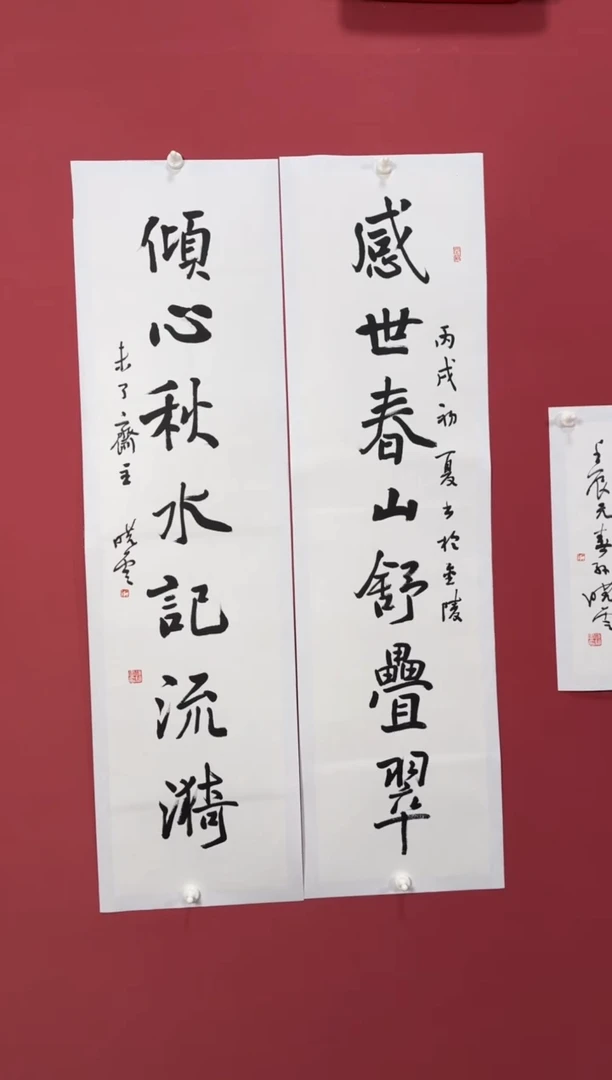 感世春山舒疊翠
丙戌初夏書於金陵
傾心秋水記流漪
未了齋主 曉雲
壬辰元春孫曉雲